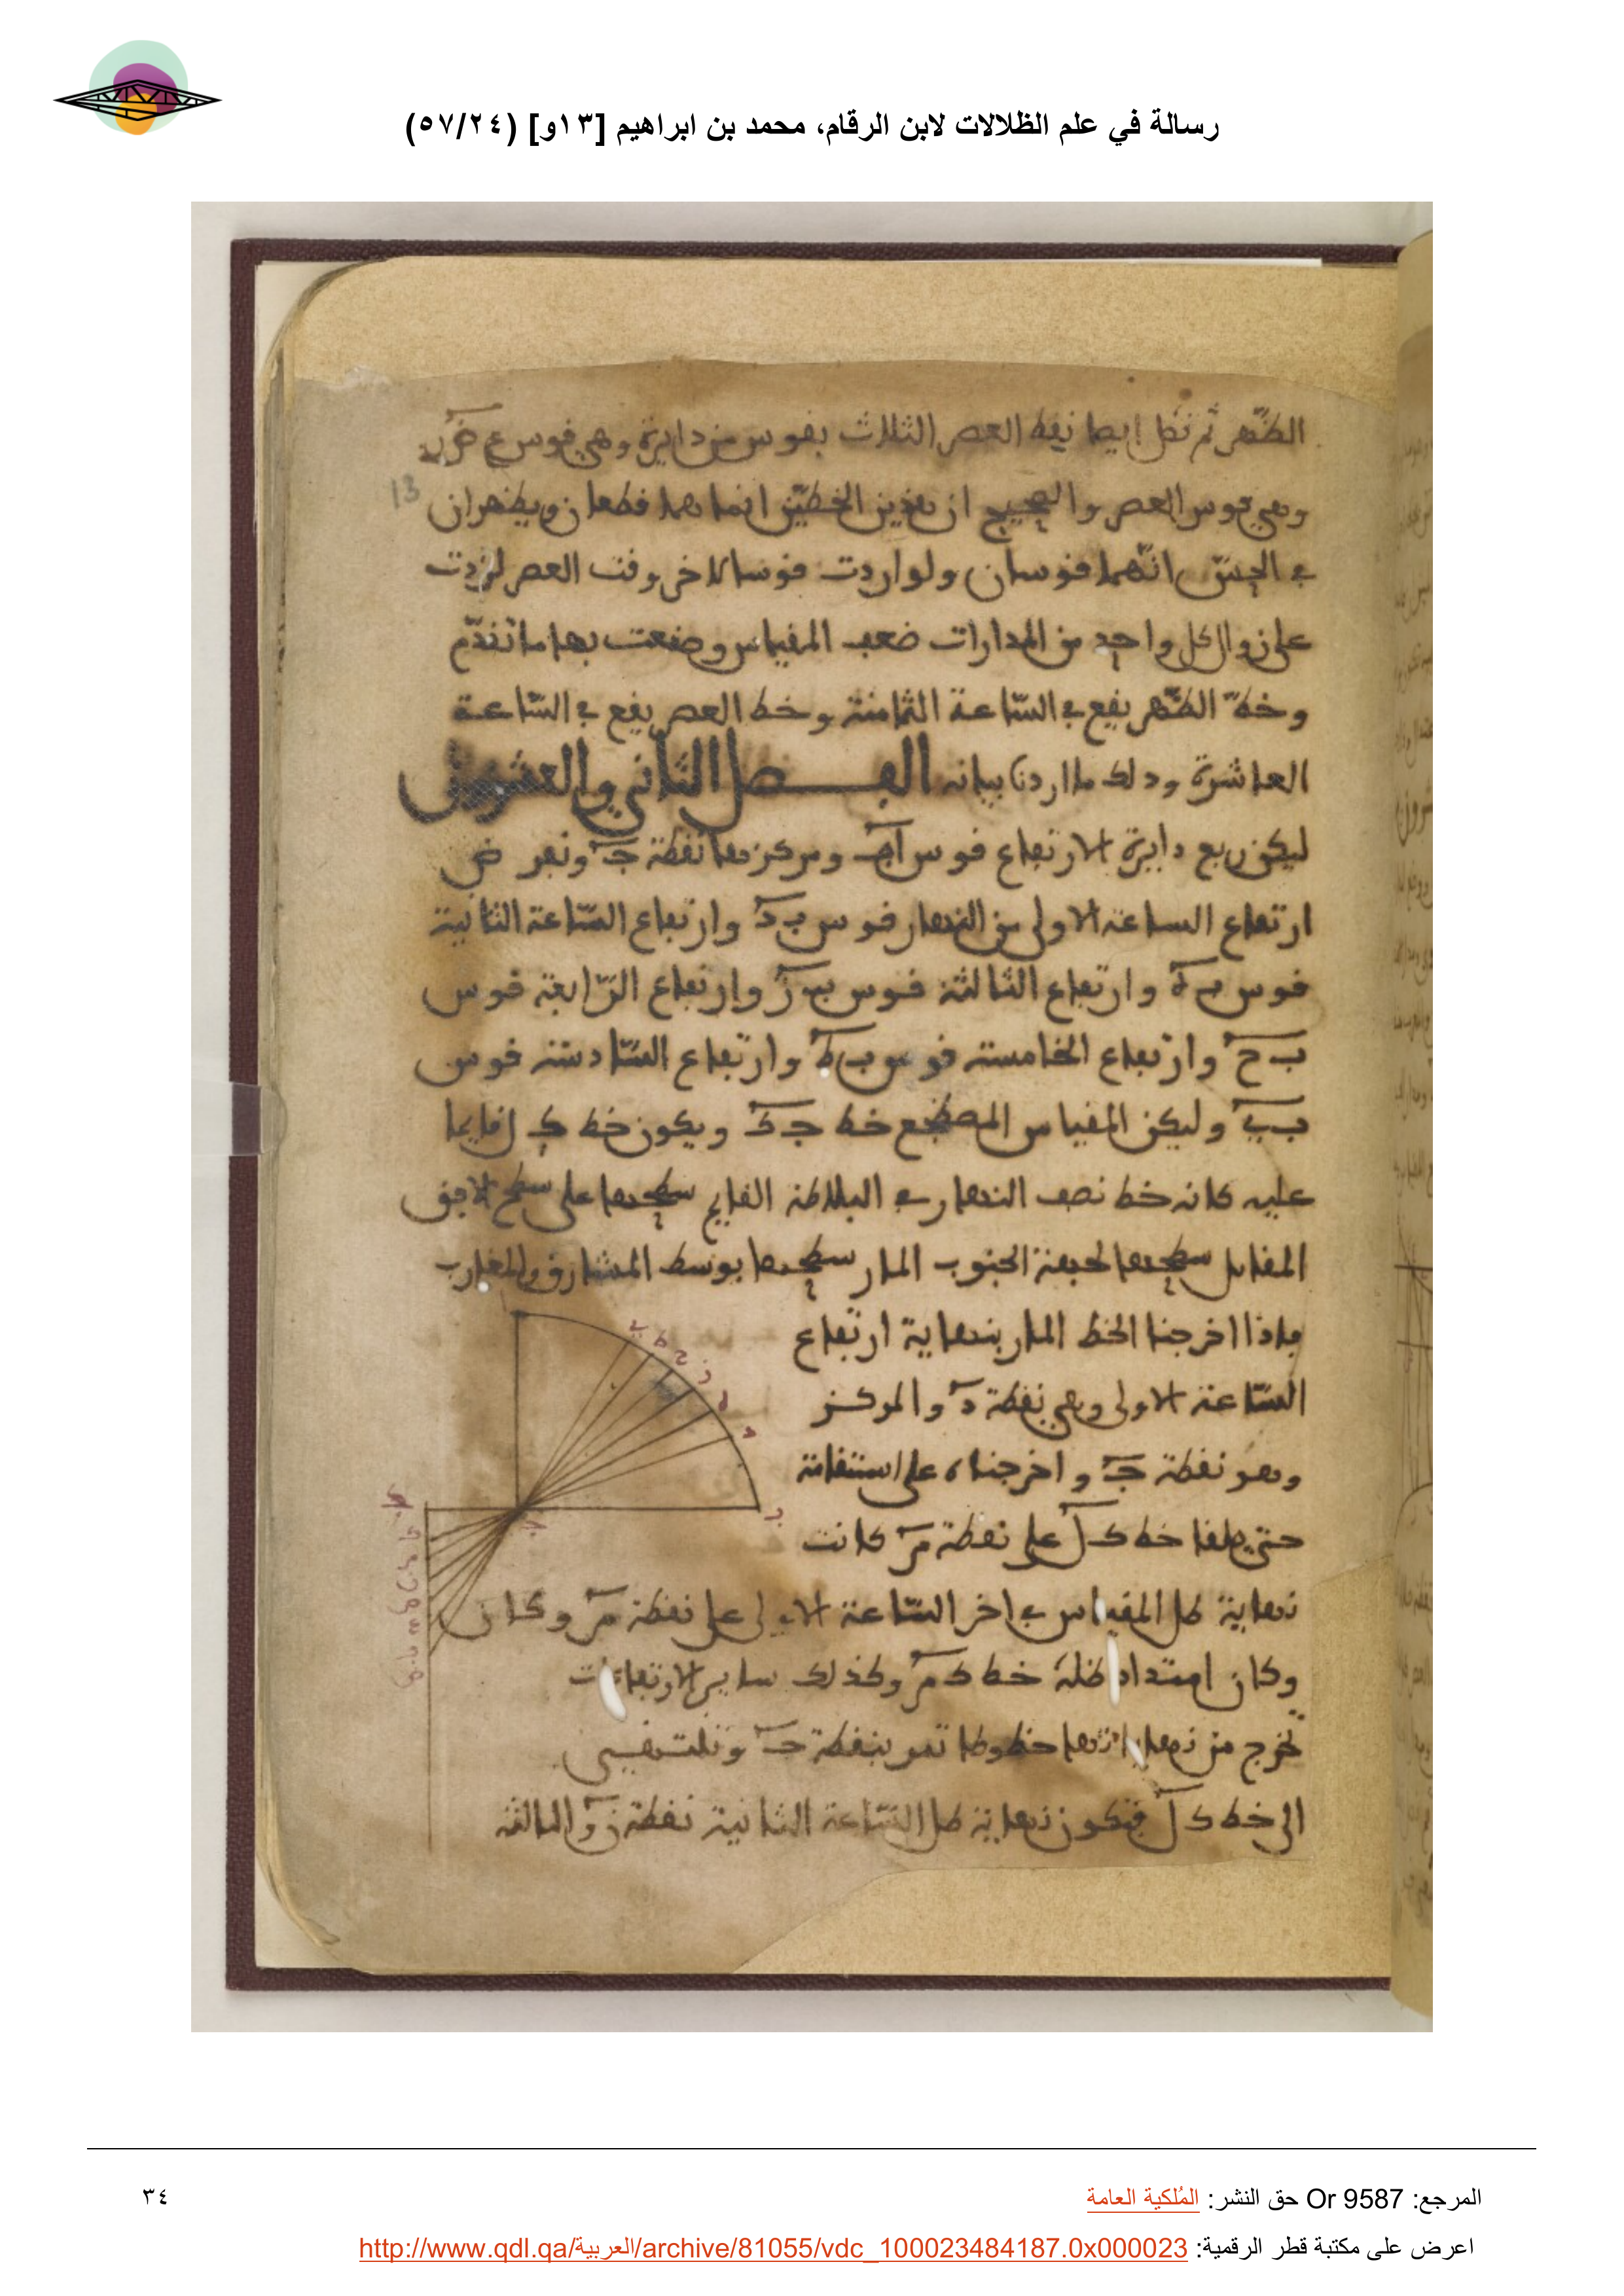 رسالة في علم الظلالات لابن الرقام، محمد بن ابراهيم [١٣و] (٥٧/٢٤)
الظّهر ثم نصل ايضا نقط العصر الثلاث بقوس من دايرة وهي قوس ع
13
وهي قوس العصر والصحيح ان هذين الخطّين انما هما قطعان ويظهران
في الحسّ انّهما قوسان ولو اردت قوسا لاخر وقت العصر لزدت
على زوال كل واحد من المدارات ضعف المقياس وصنعت بها ما تقدّم
وخطّ الظّهر يقع في السّاعة الثامنة وخط العصر يقع في السّاعة
العاشرة وذلك ما اردنا بيانه الفصل الثاني والعشرون
ليكن ربع دايرة الارتفاع قوس اب ومركزها نقطة ج ونعرض
ارتفاع الساعة الاولى من النهار قوس ب د وارتفاع السّاعة الثانية
قوس ب ه وارتفاع الثالثة قوس ب ز وارتفاع الرّابعة قوس
ب ح وارتفاع الخامسة قوس ب ط وارتفاع السّادسة قوس
ب ي وليكن المقياس المصطجع خط ج ك ويكون خط ك ل قايما
عليه كانه خط نصف النهار في البلاطة القايم سطحها على سطح الافق
المقابل سطحها لجهة الجنوب المار سطحها بوسط المشارق والمغارب
فاذا اخرجنا الخط المار بنهاية ارتفاع
السّاعة الاولى وهي نقطة د والمركز
وهو نقطة ج واخرجناه على استقامة
حتى يلقا خط ك ل على نقطة م كانت
نهاية ظل المقياس في اخر السّاعة الاولى على نقطة م وكان
وكان امتداد ظله خط ك م وكذلك ساير الارتفاعات
نخرج من نهاياتها خطوطا تمر بنقطة ج وتنتهي
الى خط ك ل فتكون نهاية ظل السّاعة الثانية نقطة ن والثالثة
المرجع: Or 9587 حق النشر: المُلكية العامة
٣٤
اعرض على مكتبة قطر الرقمية: http://www.qdl.qa/العربية/archive/81055/vdc_100023484187.0x000023